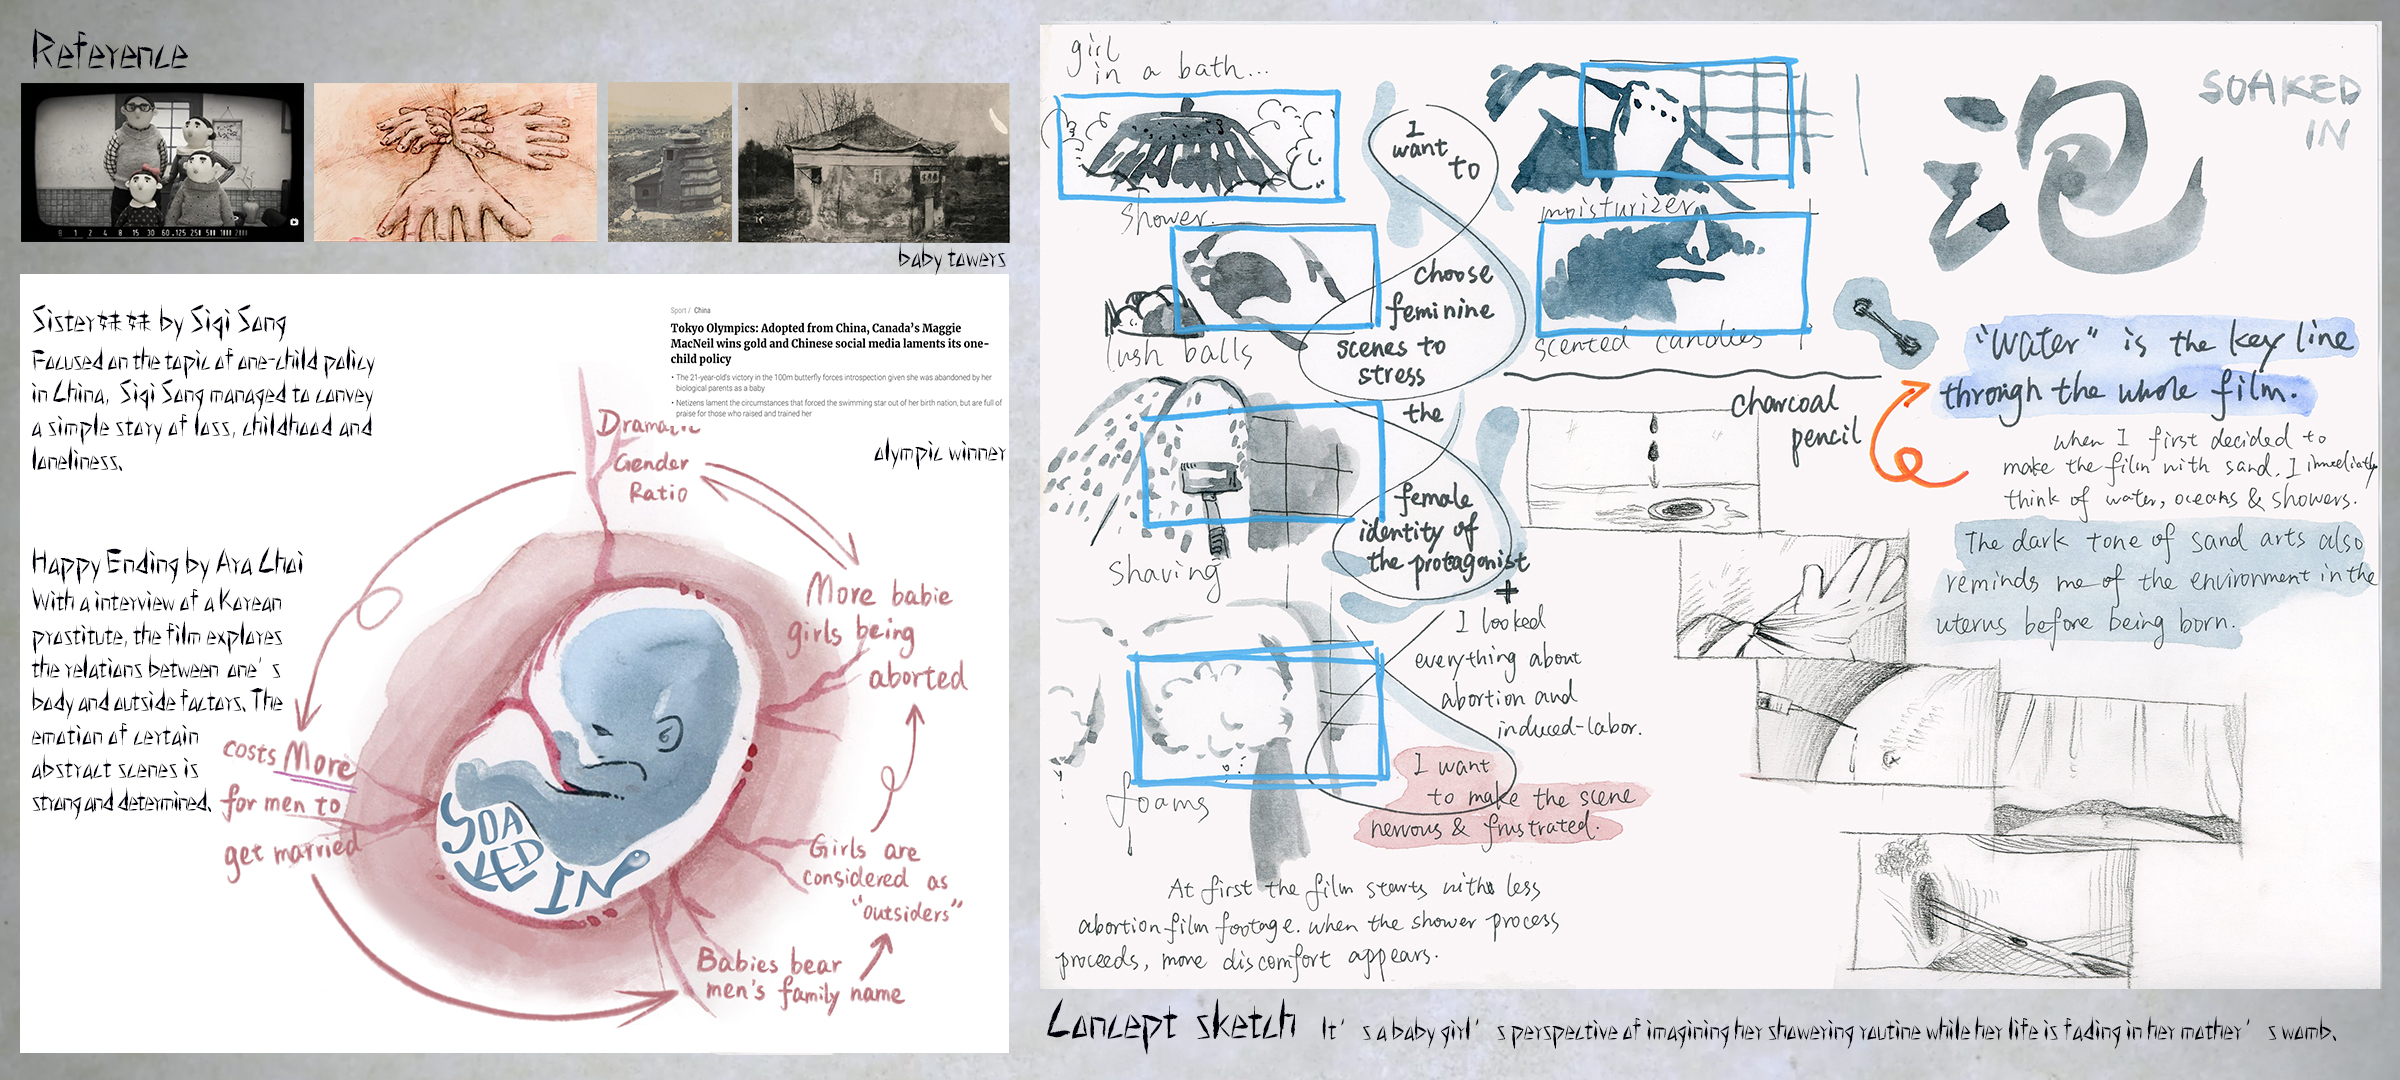 Reference
baby towers
Sister妹妹 by Siqi Song
Focused on the topic of one-child policy
in China, Siqi Song managed to convey
a simple story of loss, childhood and
loneliness.
Sport / China
Tokyo Olympics: Adopted from China, Canada's Maggie
MacNeil wins gold and Chinese social media laments its one-
child policy
• The 21-year-old's victory in the 100m butterfly forces introspection given she was abandoned by her
biological parents as a baby
• Netizens lament the circumstances that forced the swimming star out of her birth nation, but are full of
praise for those who raised and trained her
olympic winner
Happy Ending by Ara Choi
With a interview of a Korean
prostitute, the film explores
the relations between one's
body and outside factors. The
emotion of certain
abstract scenes is
strong and determined.
Dramatic
Gender
Ratio
More babie
girls being
aborted
Girls are
considered as
"outsiders"
Babies bear
men's family name
costs More
for men to
get married
SOA
KED
IN
girl
in a bath...
shower.
lush balls
shaving
foams
moisturizer
scented candles
I
want
to
choose
feminine
scenes to
stress
the
female
identity of
the protagonist
+
I looked
everything about
abortion and
induced-labor.
I want
to make the scene
nervous & frustrated.
At first the film starts with less
abortion film footage. when the shower process
proceeds, more discomfort appears.
charcoal
pencil
泡
SOAKED
IN
"Water" is the key line
through the whole film.
when I first decided to
make the film with sand. I immediately
think of water, oceans & showers.
The dark tone of sand arts also
reminds me of the environment in the
uterus before being born.
Concept sketch It's a baby girl's perspective of imagining her showering routine while her life is fading in her mother's womb.